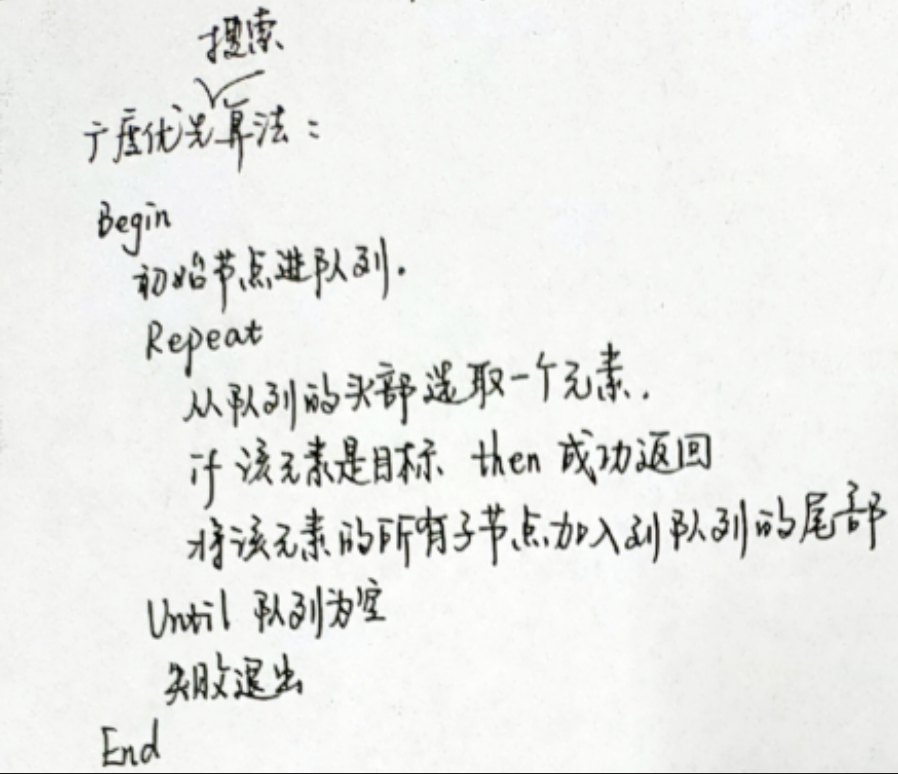 搜索
广度优先算法：
Begin
初始节点进队列.
Repeat
从队列的头部选取一个元素.
if 该元素是目标 then 成功返回
将该元素的所有子节点加入到队列的尾部
Until 队列为空
失败退出
End